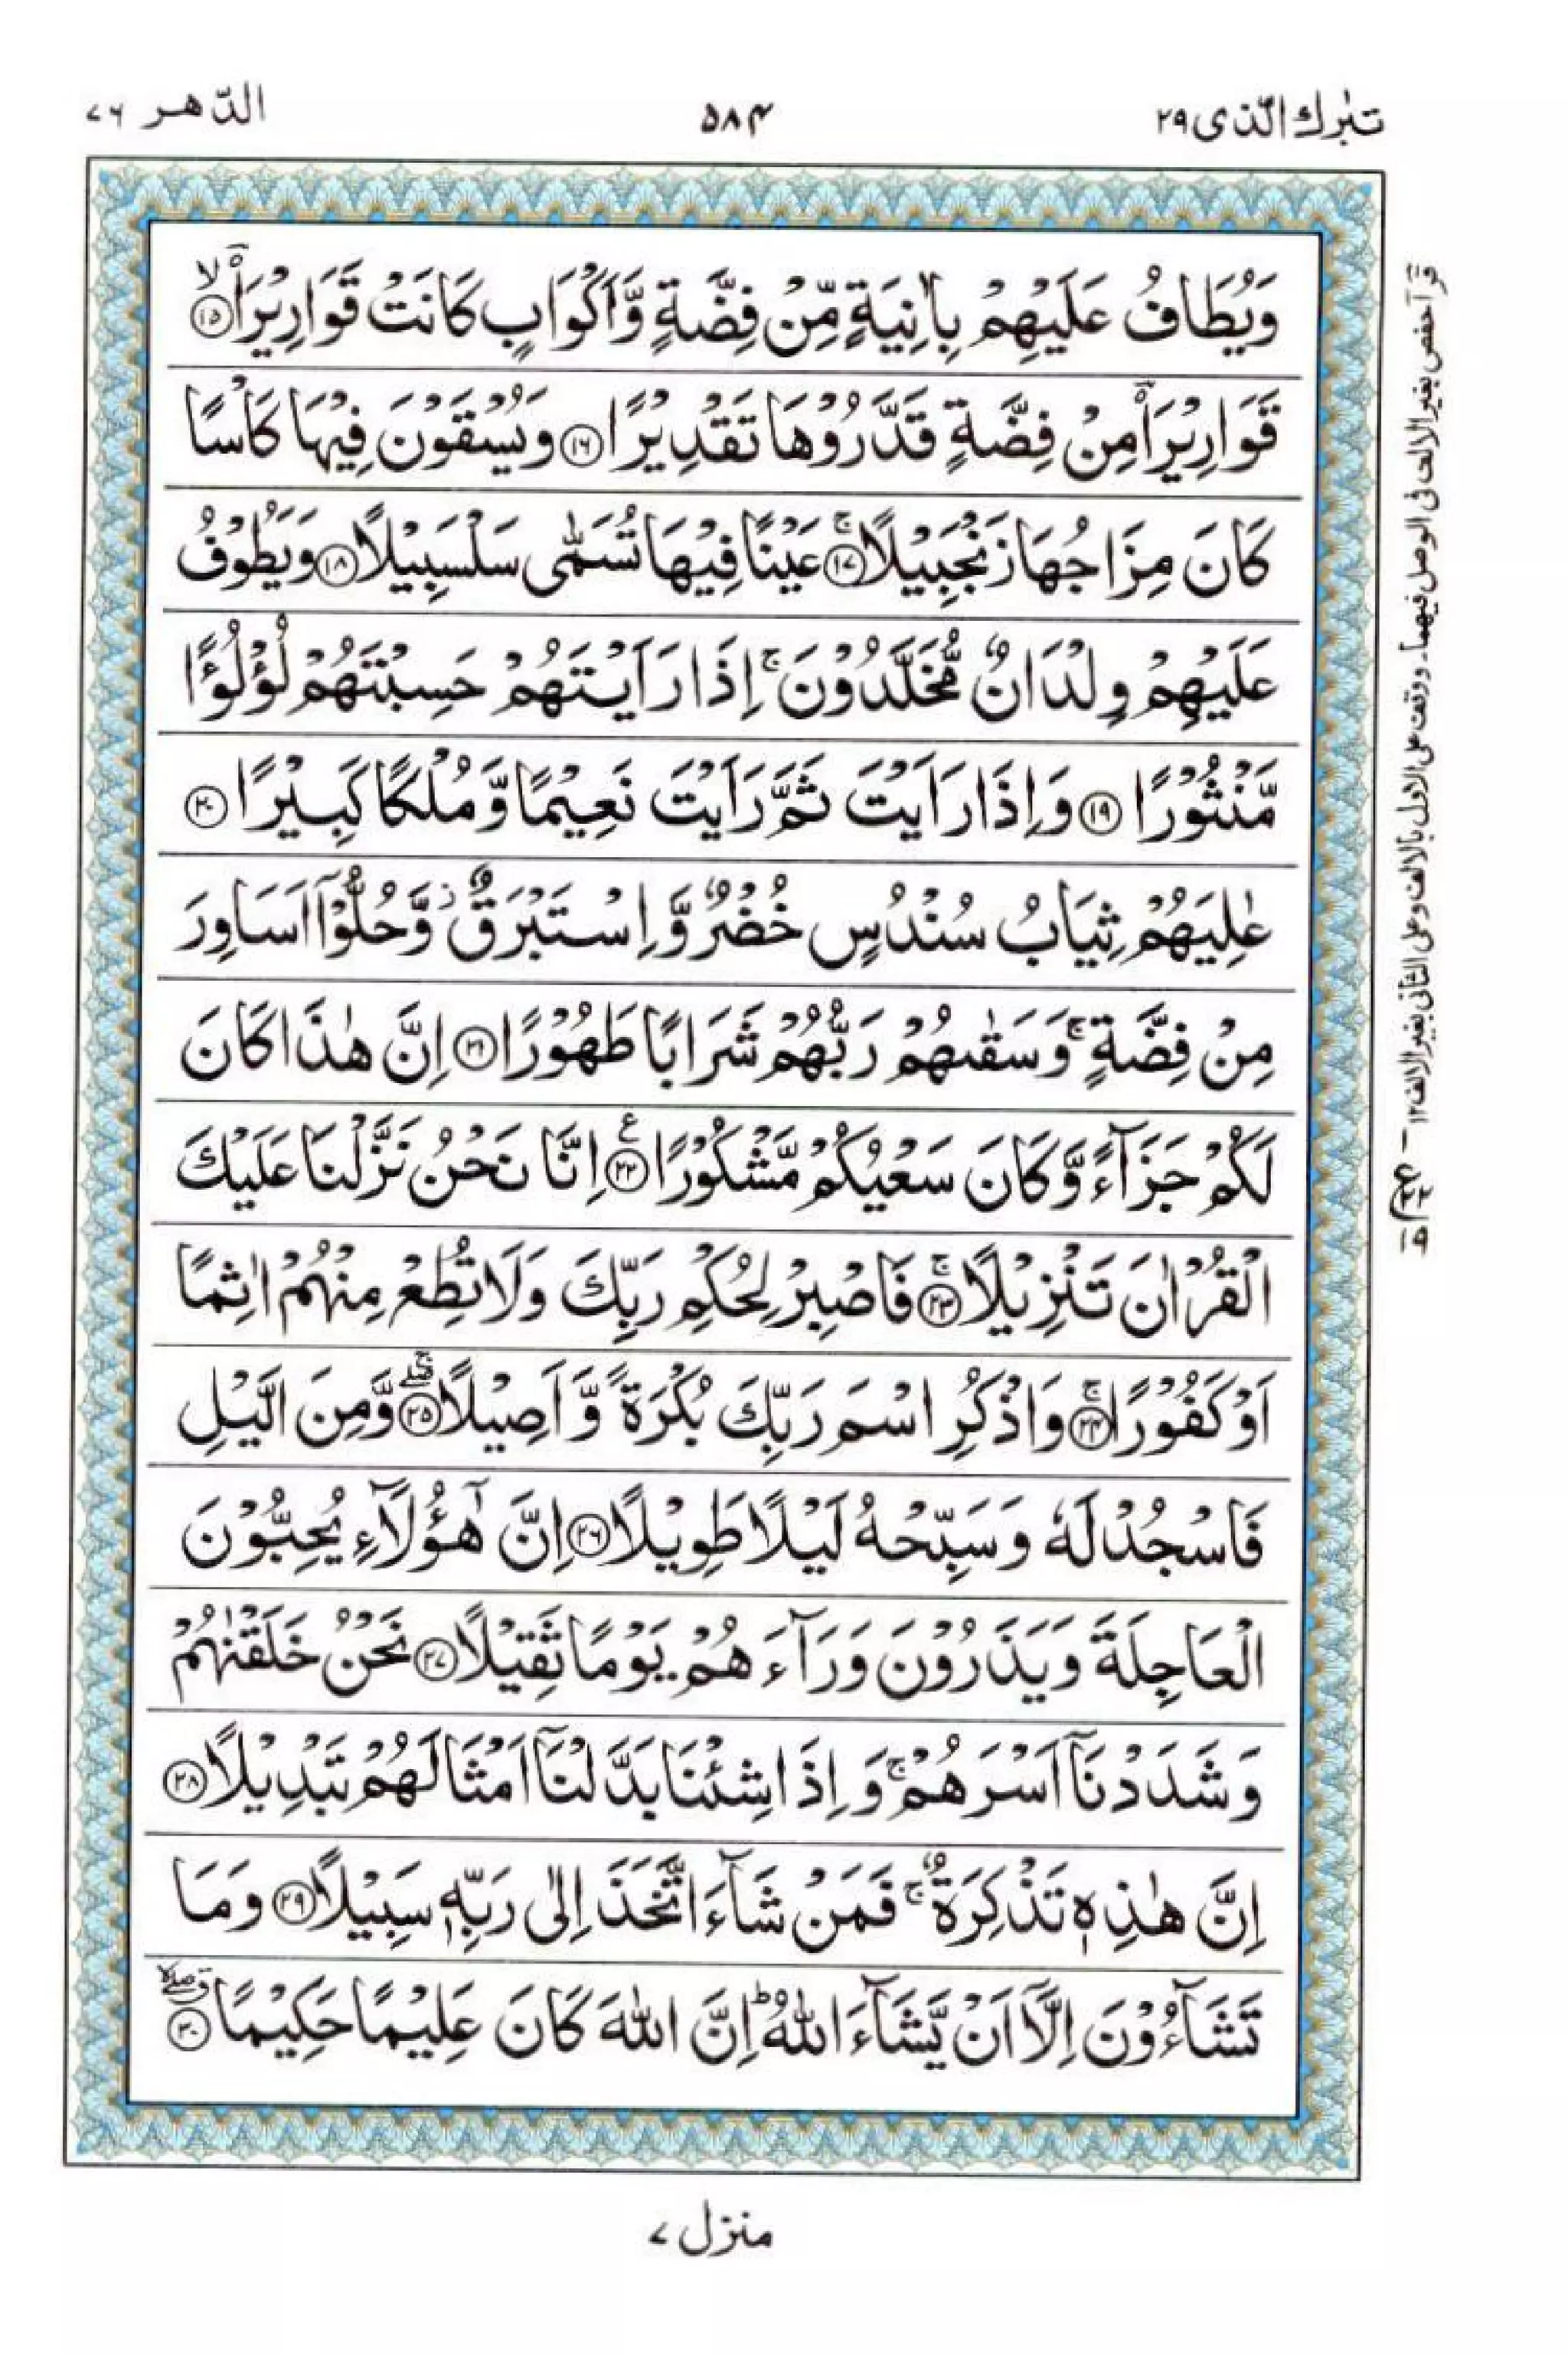 تبٰرك الّذی ۲۹
۵۸۴
الدّهر ۷۶
وَيُطَافُ عَلَيْهِمْ بِاٰنِيَةٍ مِّنْ فِضَّةٍ وَّاَكْوَابٍ كَانَتْ قَوَارِيْرَا۠ ۙ ⑮
قَوَارِيْرَا۠ مِنْ فِضَّةٍ قَدَّرُوْهَا تَقْدِيْرًا ⑯ وَيُسْقَوْنَ فِيْهَا كَاْسًا
كَانَ مِزَاجُهَا زَنْجَبِيْلًا ۚ ⑰ عَيْنًا فِيْهَا تُسَمّٰى سَلْسَبِيْلًا ⑱ وَيَطُوْفُ
عَلَيْهِمْ وِلْدَانٌ مُّخَلَّدُوْنَ ۚ اِذَا رَاَيْتَهُمْ حَسِبْتَهُمْ لُؤْلُؤًا
مَّنْثُوْرًا ⑲ وَاِذَا رَاَيْتَ ثَمَّ رَاَيْتَ نَعِيْمًا وَّمُلْكًا كَبِيْرًا ⑳
عٰلِيَهُمْ ثِيَابُ سُنْدُسٍ خُضْرٌ وَّاِسْتَبْرَقٌ ؗ وَّحُلُّوْٓا اَسَاوِرَ
مِنْ فِضَّةٍ ۚ وَسَقٰىهُمْ رَبُّهُمْ شَرَابًا طَهُوْرًا ㉑ اِنَّ هٰذَا كَانَ
لَكُمْ جَزَآءً وَّكَانَ سَعْيُكُمْ مَّشْكُوْرًا ع ㉒ اِنَّا نَحْنُ نَزَّلْنَا عَلَيْكَ
الْقُرْاٰنَ تَنْزِيْلًا ۚ ㉓ فَاصْبِرْ لِحُكْمِ رَبِّكَ وَلَا تُطِعْ مِنْهُمْ اٰثِمًا
اَوْ كَفُوْرًا ۚ ㉔ وَاذْكُرِ اسْمَ رَبِّكَ بُكْرَةً وَّاَصِيْلًا ۖۚ ㉕ وَّمِنَ الَّيْلِ
فَاسْجُدْ لَهٗ وَسَبِّحْهُ لَيْلًا طَوِيْلًا ㉖ اِنَّ هٰٓؤُلَآءِ يُحِبُّوْنَ
الْعَاجِلَةَ وَيَذَرُوْنَ وَرَآءَهُمْ يَوْمًا ثَقِيْلًا ㉗ نَحْنُ خَلَقْنٰهُمْ
وَشَدَدْنَآ اَسْرَهُمْ ۚ وَاِذَا شِئْنَا بَدَّلْنَآ اَمْثَالَهُمْ تَبْدِيْلًا ㉘
اِنَّ هٰذِهٖ تَذْكِرَةٌ ۚ فَمَنْ شَآءَ اتَّخَذَ اِلٰى رَبِّهٖ سَبِيْلًا ㉙ وَمَا
تَشَآءُوْنَ اِلَّآ اَنْ يَّشَآءَ اللّٰهُ ؕ اِنَّ اللّٰهَ كَانَ عَلِيْمًا حَكِيْمًا ۗۖ ㉚
قرأ حفص بغير الالف فى الوصل فيهما۔ ووقف على الاول بالالف وعلى الثانى بغير الالف ۱۲
منزل ۷